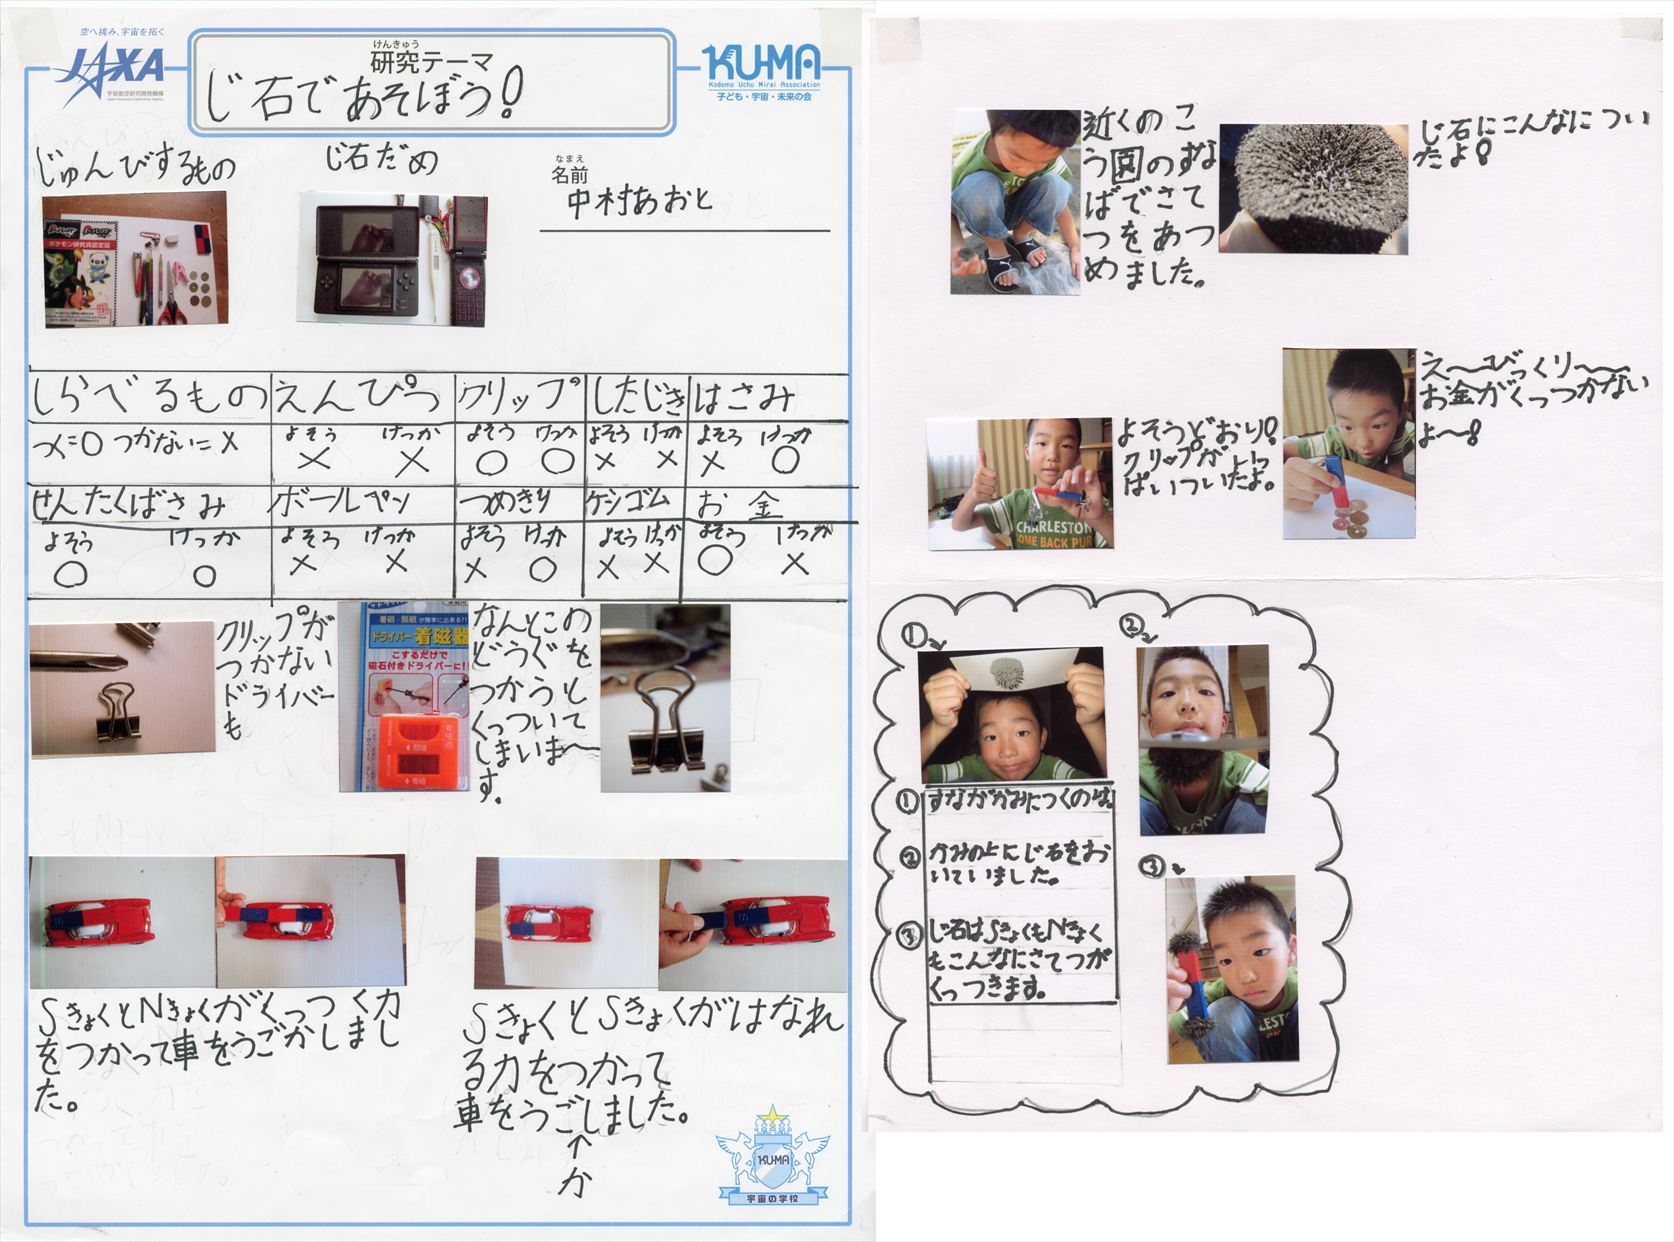 空へ挑み、宇宙を拓く
JAXA
宇宙航空研究開発機構
Japan Aerospace Exploration Agency
けんきゅう
研究テーマ
じ石であそぼう！
KU-MA
Kodomo Uchu Mirai Association
子ども・宇宙・未来の会
じゅんびするもの
じ石だめ
なまえ
名前
中村あおと
ポケモン研究員認定証
しらべるもの えんぴつ クリップ したじき はさみ
つく=○ つかない=× よそう けっか よそう けっか よそう けっか よそう けっか
× × ○ ○ × × × ○
せんたくばさみ ボールペン つめきり ケシゴム お金
よそう けっか よそう けっか よそう けっか よそう けっか よそう けっか
○ ○ × × × ○ × × ○ ×
クリップが
つかない
ドライバー
も
着磁・脱磁が簡単に出来る!!
ドライバー着磁器
こするだけで
磁石付きドライバーに!!
なんとこの
どうぐを
つかうと
くっついて
しまいま〜
す。
SきょくとNきょくがくっつく力
をつかって車をうごかしまし
た。
SきょくとSきょくがはなれ
る力をつかって
車をうごしました。
↑
か
KU-MA
宇宙の学校
近くのこ
う園のすな
ばでさて
つをあつ
めました。
じ石にこんなについ
たよ！
よそうどおり！
クリップがいっ
ぱいついたよ。
CHARLESTON
COME BACK PUR
え〜びっくり〜
お金がくっつかない
よ〜！
①
②
③
① すながかみにつくのは。
② かみの上にじ石をお
いていました。
③ じ石はSきょくもNきょく
もこんなにさてつが
くっつきます。